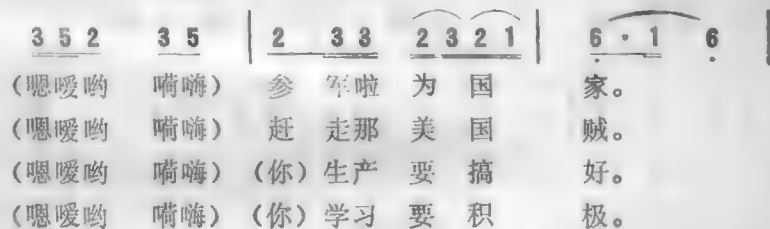 3 5 2 3 5 | 2 3 3 2 3 2 1 | 6 · 1 6 |
(嗯嗳哟 嗬嗨) 参 军啦 为 国 家。
(嗯嗳哟 嗬嗨) 赶 走那 美 国 贼。
(嗯嗳哟 嗬嗨) (你) 生产 要 搞 好。
(嗯嗳哟 嗬嗨) (你) 学习 要 积 极。